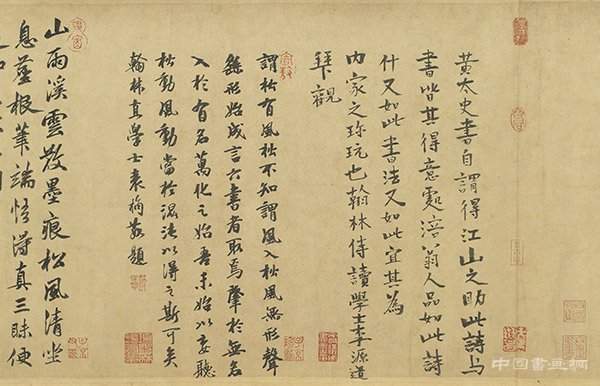 黄太史書自謂得江山之助此詩与
書皆其得意處涪翁人品如此詩
什又如此書法又如此宜其為
内家之珎玩也翰林侍讀學士李源道
拜觀
謂松有風松不知謂風入松風無形聲
繇形始成言六書者取焉肇於無名
入於有名萬化之始吾未始以妄聽
松動風動當於以得之斯可矣
翰林直學士袁桷敬題
山雨溪雲散墨痕松風清坐
息塵根筆端悟得真三昧便
中国書画網